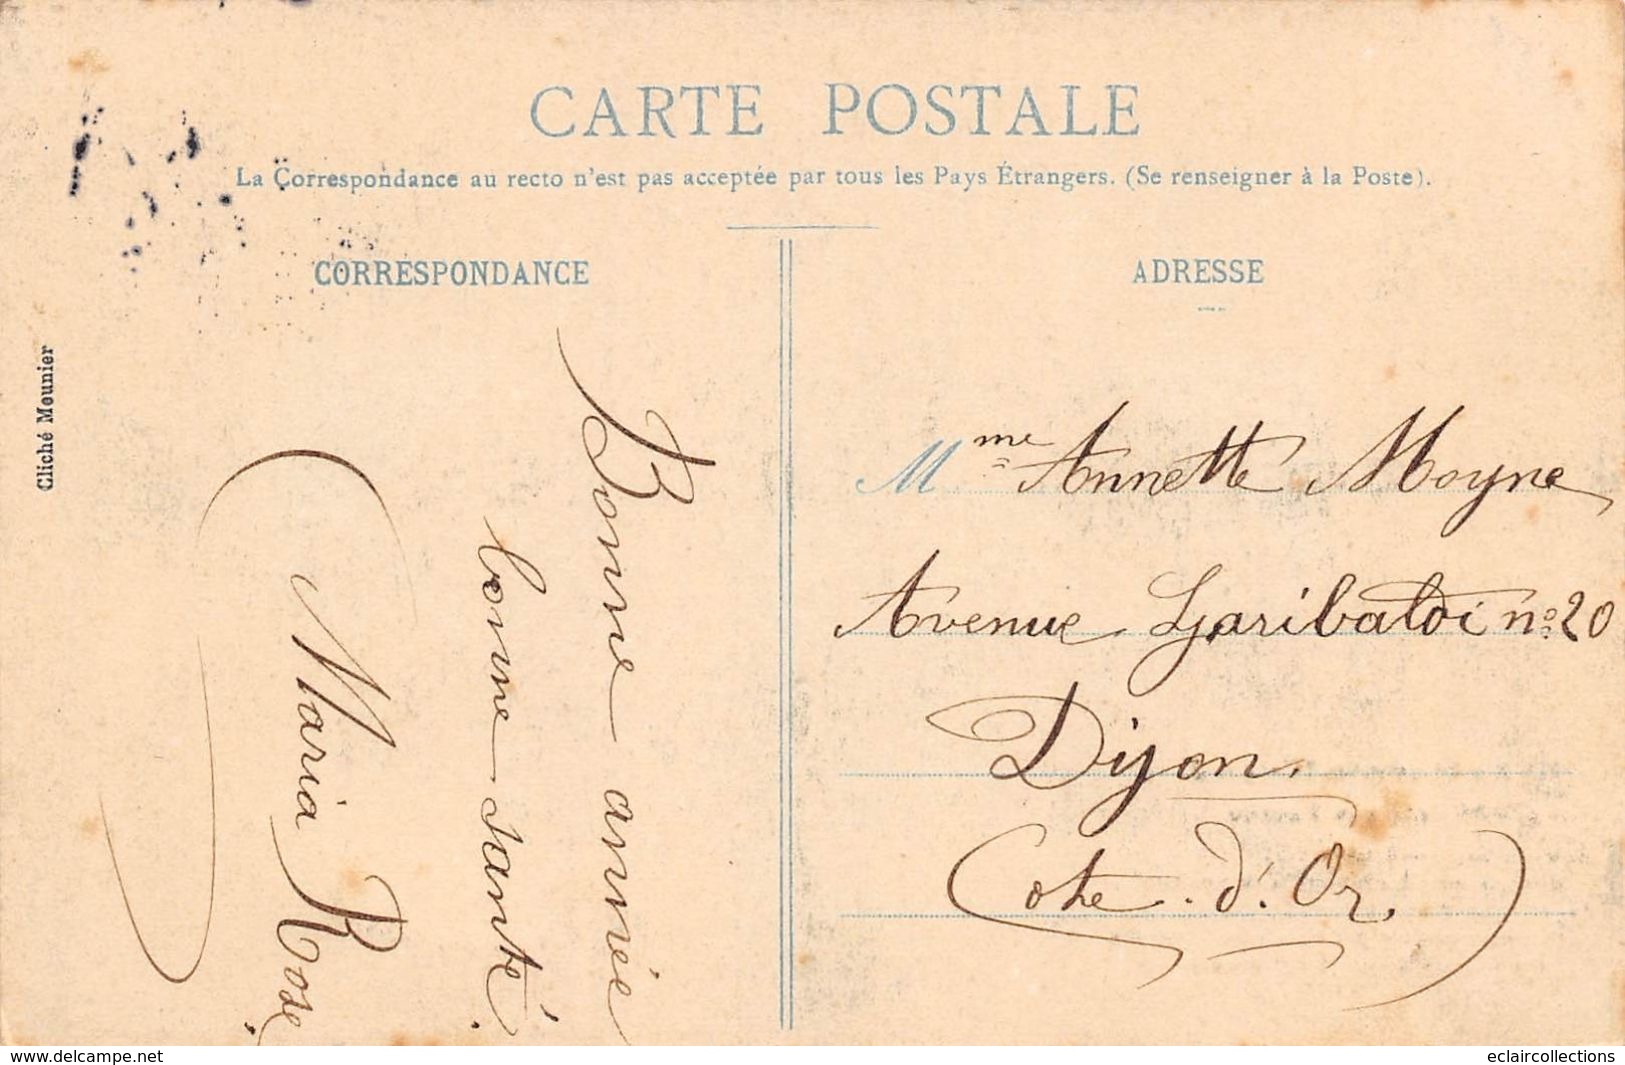 CARTE POSTALE
La Correspondance au recto n'est pas acceptée par tous les Pays Étrangers. (Se renseigner à la Poste).
CORRESPONDANCE
Bonne année
bonne santé.
Maria Rose
Cliché Meunier
ADRESSE
Mme Annette Moyne
Avenue Garibaldi no 20
Dijon.
(Côte. d'Or.)
www.delcampe.net
eclaircollections